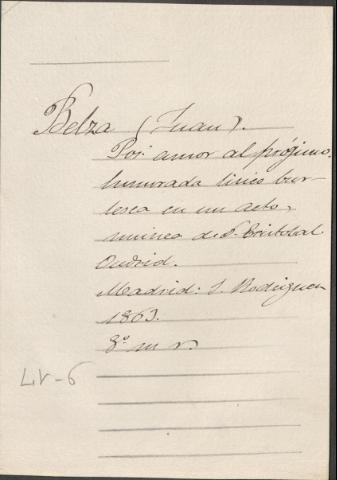 Belza (Juan).
Por amor al prójimo.
humorada lírico bur-
lesca en un acto,
música de D. Cristobal
Oudrid.
Madrid: J. Rodriguez
1863.
8º m r.
LV-6